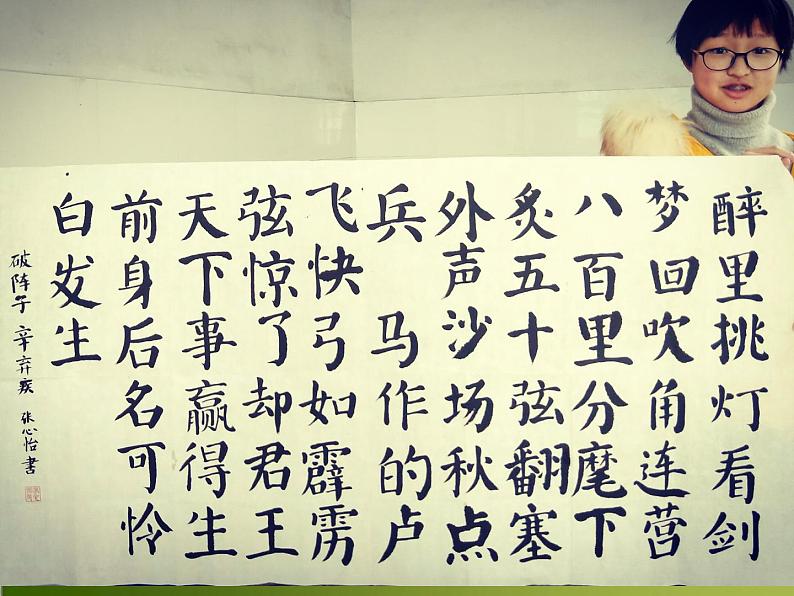 醉里挑灯看剑
梦回吹角连营
八百里分麾下
炙五十弦翻塞
外声沙场秋点
兵 马作的卢
飞快弓如霹雳
弦惊了却君王
天下事赢得生
前身后名可怜
白发生
破阵子 辛弃疾 张心怡書